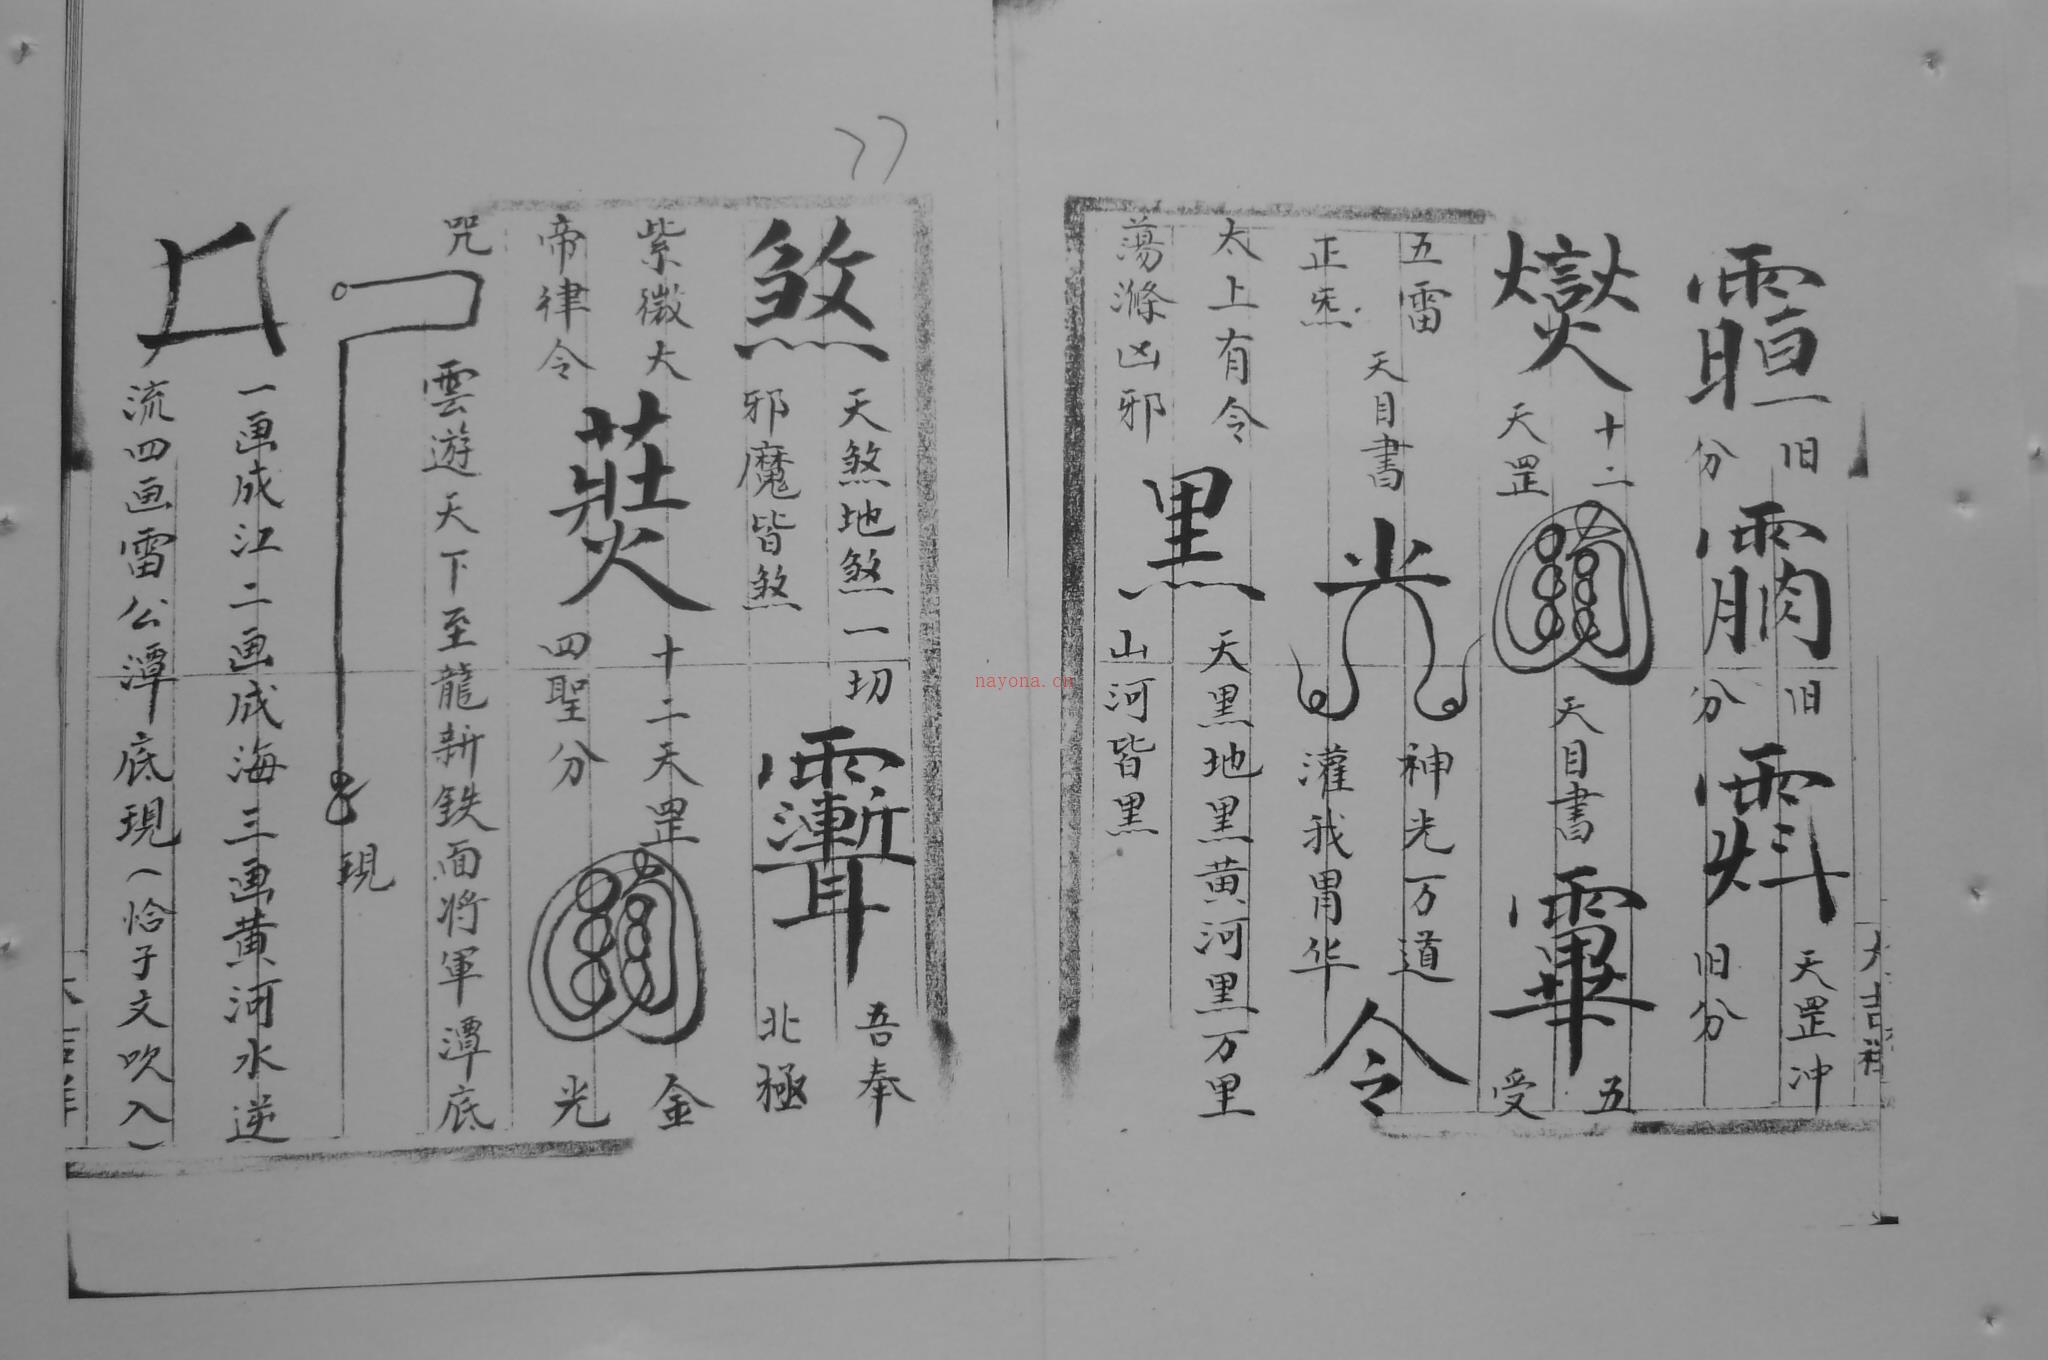 旧分
旧分
天罡冲
旧分
十二天罡
天目書
五受
五雷正炁
天目書
神光万道
灌我胃华
令
太上有令
蕩滌凶邪
黑
天黑地黑黄河黑万里
山河皆黑
煞
天煞地煞一切
邪魔皆煞
吾奉
北極
紫微大
帝律令
十二天罡
四聖分
金
光
咒
雲遊天下至龍新鉄面将軍潭底
現
一画成江二画成海三画黄河水逆
流四画雷公潭底現(恰子文吹入)
77
nayona.cn